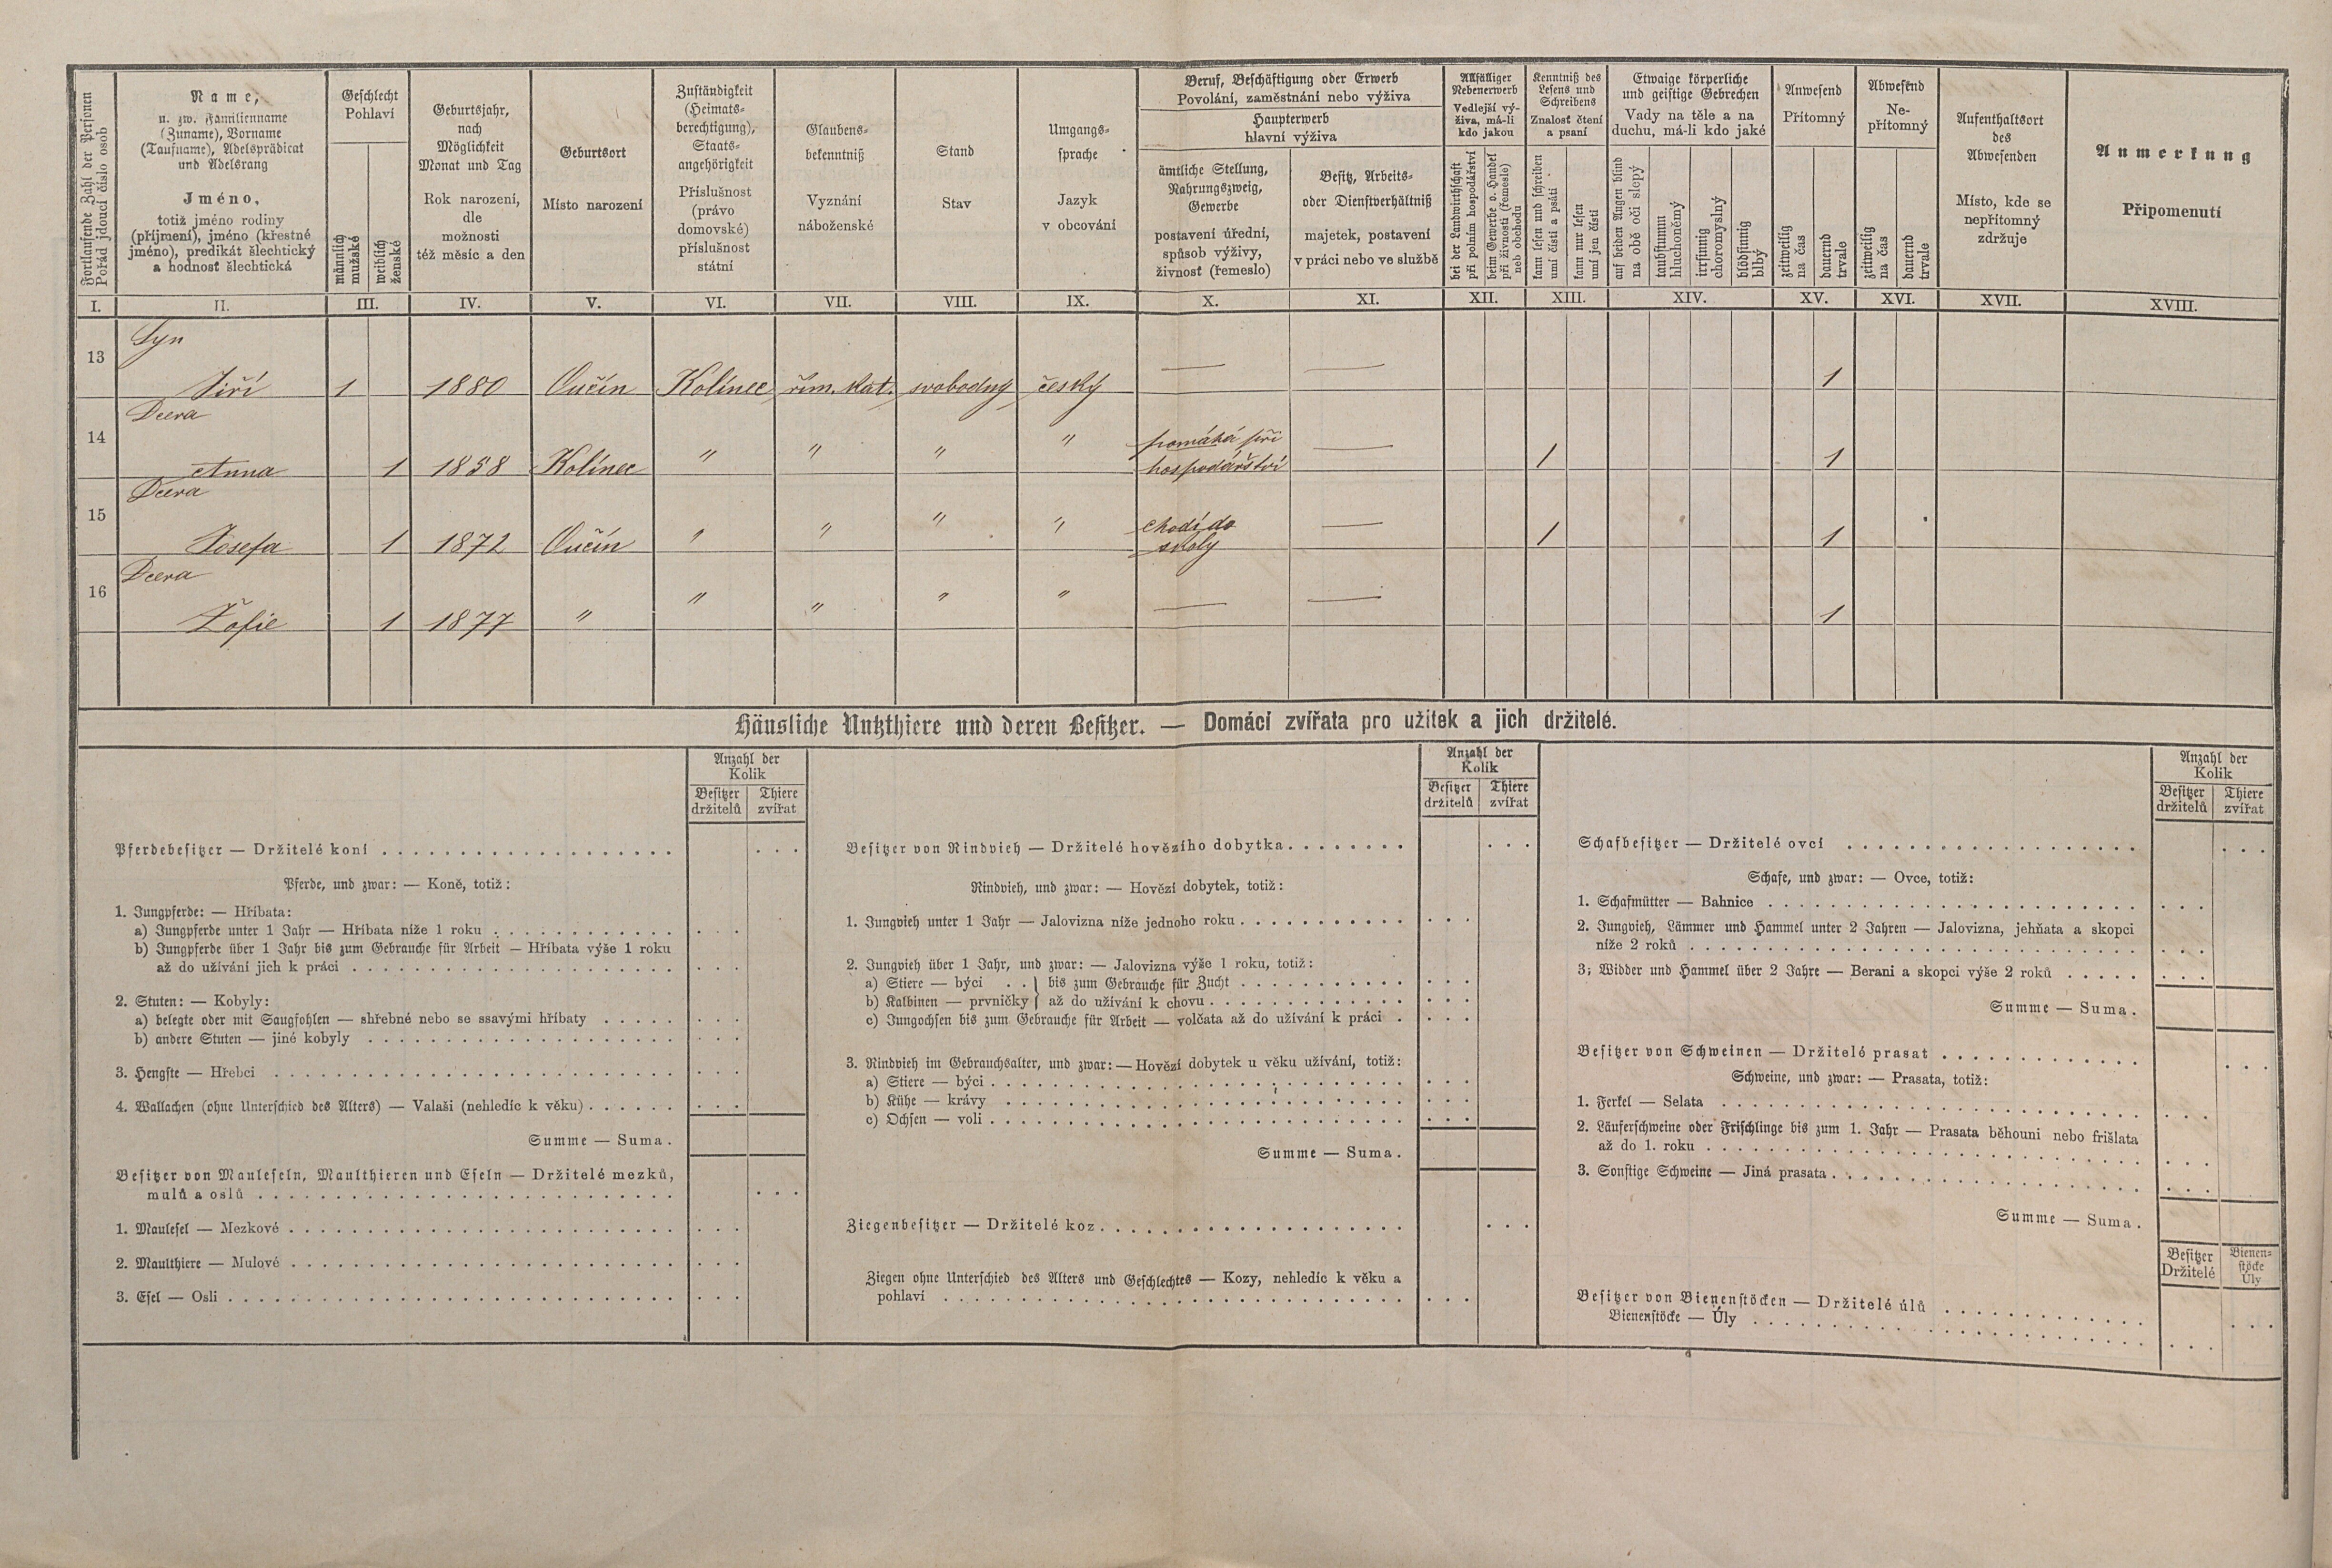 Fortlaufende Zahl der Personen
Pořád jdoucí číslo osob
Name,
u. zw. Familienname
(Zuname), Vorname
(Taufname), Adelsprädicat
und Adelsrang
Jméno,
totiž jméno rodiny
(příjmení), jméno (křestné
jméno), predikát šlechtický
a hodnost šlechtická
Geschlecht
Pohlaví
männlich
mužské
weiblich
ženské
Geburtsjahr,
nach
Möglichkeit
Monat und Tag
Rok narození,
dle
možnosti
též měsíc a den
Geburtsort
Místo narození
Zuständigkeit
(Heimats-
berechtigung),
Staats-
angehörigkeit
Příslušnost
(právo
domovské)
příslušnost
státní
Glaubens-
bekenntniß
Vyznání
náboženské
Stand
Stav
Umgangs-
sprache
Jazyk
v obcování
Beruf, Beschäftigung oder Erwerb
Povolání, zaměstnání nebo výživa
Haupterwerb
hlavní výživa
ämtliche Stellung,
Nahrungszweig,
Gewerbe
postavení úřední,
spůsob výživy,
živnost (řemeslo)
Besitz, Arbeits-
oder Dienstverhältniß
majetek, postavení
v práci nebo ve službě
Allfälliger
Nebenerwerb
Vedlejší vý-
živa, má-li
kdo jakou
bei der Landwirthschaft
při polním hospodářství
beim Gewerbe o. Handel
při živnosti (řemesle)
neb obchodu
Kenntniß des
Lesens und
Schreibens
Znalost čtení
a psaní
kann lesen und schreiben
umí čísti a psáti
kann nur lesen
umí jen čísti
Etwaige körperliche
und geistige Gebrechen
Vady na těle a na
duchu, má-li kdo jaké
auf beiden Augen blind
na obě oči slepý
taubstumm
hluchoněmý
irrsinnig
choromyslný
blödsinnig
blbý
Anwesend
Přítomný
zeitweilig
na čas
dauernd
trvale
Abwesend
Ne-
přítomný
zeitweilig
na čas
dauernd
trvale
Aufenthaltsort
des
Abwesenden
Místo, kde se
nepřítomný
zdržuje
Anmerkung
Připomenutí
I. II. III. IV. V. VI. VII. VIII. IX. X. XI. XII. XIII. XIV. XV. XVI. XVII. XVIII.
Syn
13 Jiří 1 1880 Očín Kolínec řím. kat. svobodný český — — 1
Dcera
14 Anna 1 1858 Kolínec " " " " pomáhá při — 1 1
hospodářství
Dcera
15 Josefa 1 1872 Očín " " " " chodí do — 1 1
školy
Dcera
16 Žofie 1 1877 " " " " " — — 1
Häusliche Nutzthiere und deren Besitzer. — Domácí zvířata pro užitek a jich držitelé.
Anzahl der
Kolik
Besitzer
držitelů
Thiere
zvířat
Pferdebesitzer — Držitelé koní
Pferde, und zwar: — Koně, totiž:
1. Jungpferde: — Hříbata:
a) Jungpferde unter 1 Jahr — Hříbata níže 1 roku
b) Jungpferde über 1 Jahr bis zum Gebrauche für Arbeit — Hříbata výše 1 roku
až do užívání jich k práci
2. Stuten: — Kobyly:
a) belegte oder mit Saugfohlen — shřebné nebo se ssavými hříbaty
b) andere Stuten — jiné kobyly
3. Hengste — Hřebci
4. Wallachen (ohne Unterschied des Alters) — Valaši (nehledíc k věku)
Summe — Suma.
Besitzer von Mauleseln, Maulthieren und Eseln — Držitelé mezků,
mulů a oslů
1. Maulesel — Mezkové
2. Maulthiere — Mulové
3. Esel — Osli
Anzahl der
Kolik
Besitzer
držitelů
Thiere
zvířat
Besitzer von Rindvieh — Držitelé hovězího dobytka
Rindvieh, und zwar: — Hovězí dobytek, totiž:
1. Jungvieh unter 1 Jahr — Jalovizna níže jednoho roku
2. Jungvieh über 1 Jahr, und zwar: — Jalovizna výše 1 roku, totiž:
a) Stiere — býci . . } bis zum Gebrauche für Zucht
b) Kalbinen — prvničky } až do užívání k chovu
c) Jungochsen bis zum Gebrauche für Arbeit — volčata až do užívání k práci
3. Rindvieh im Gebrauchsalter, und zwar: — Hovězí dobytek u věku užívání, totiž:
a) Stiere — býci
b) Kühe — krávy
c) Ochsen — voli
Summe — Suma.
Ziegenbesitzer — Držitelé koz
Ziegen ohne Unterschied des Alters und Geschlechtes — Kozy, nehledíc k věku a
pohlaví
Anzahl der
Kolik
Besitzer
držitelů
Thiere
zvířat
Schafbesitzer — Držitelé ovcí
Schafe, und zwar: — Ovce, totiž:
1. Schafmütter — Bahnice
2. Jungvieh, Lämmer und Hammel unter 2 Jahren — Jalovizna, jehňata a skopci
níže 2 roků
3. Widder und Hammel über 2 Jahre — Berani a skopci výše 2 roků
Summe — Suma.
Besitzer von Schweinen — Držitelé prasat
Schweine, und zwar: — Prasata, totiž:
1. Ferkel — Selata
2. Läuferschweine oder Frischlinge bis zum 1. Jahr — Prasata běhouni nebo frišlata
až do 1. roku
3. Sonstige Schweine — Jiná prasata
Summe — Suma.
Besitzer
Držitelé
Bienen-
stöcke
Úly
Besitzer von Bienenstöcken — Držitelé úlů
Bienenstöcke — Úly